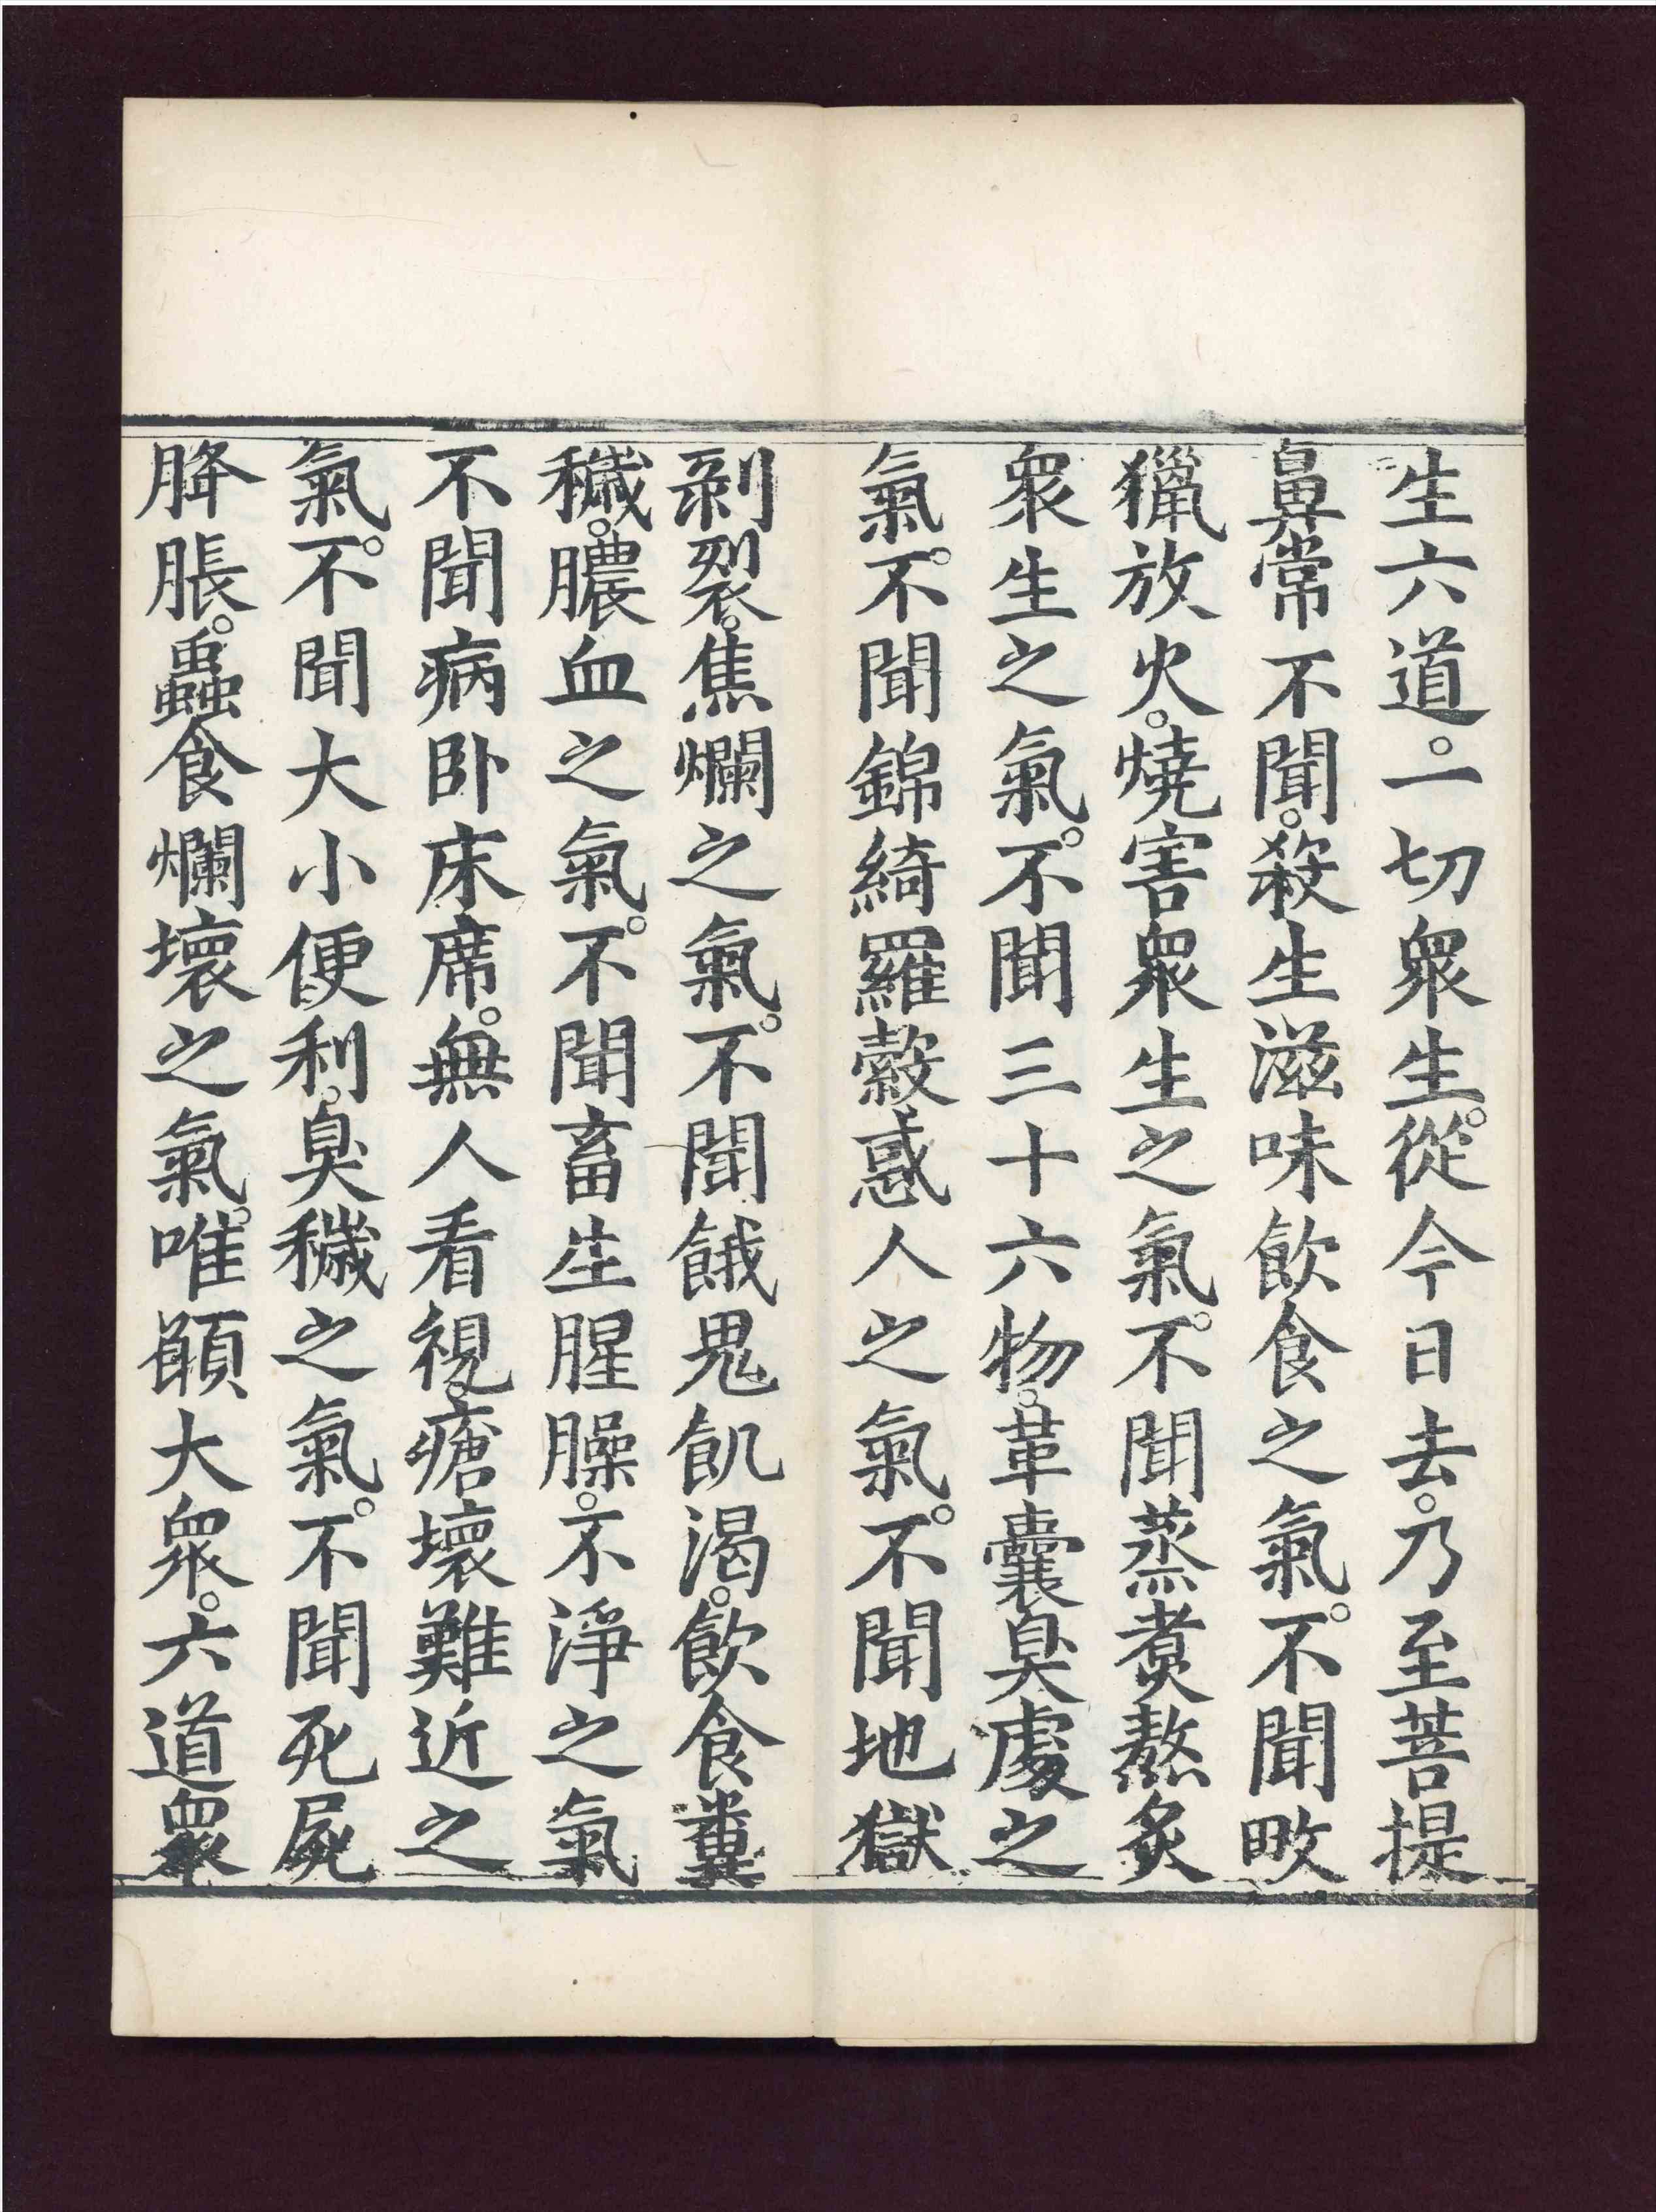 生六道。一切衆生。從今日去。乃至菩提
鼻常不聞。殺生滋味飲食之氣。不聞畋
獵放火。燒害衆生之氣。不聞蒸煑熬炙
衆生之氣。不聞三十六物。革囊臭處之
氣。不聞錦綺羅縠惑人之氣。不聞地獄
剥裂。焦爛之氣。不聞餓鬼飢渴。飲食糞
穢。膿血之氣。不聞畜生腥臊。不淨之氣
不聞病卧床席。無人看視。瘡壞難近之
氣。不聞大小便利。臭穢之氣。不聞死屍
胮脹。蟲食爛壞之氣。唯願大衆。六道衆